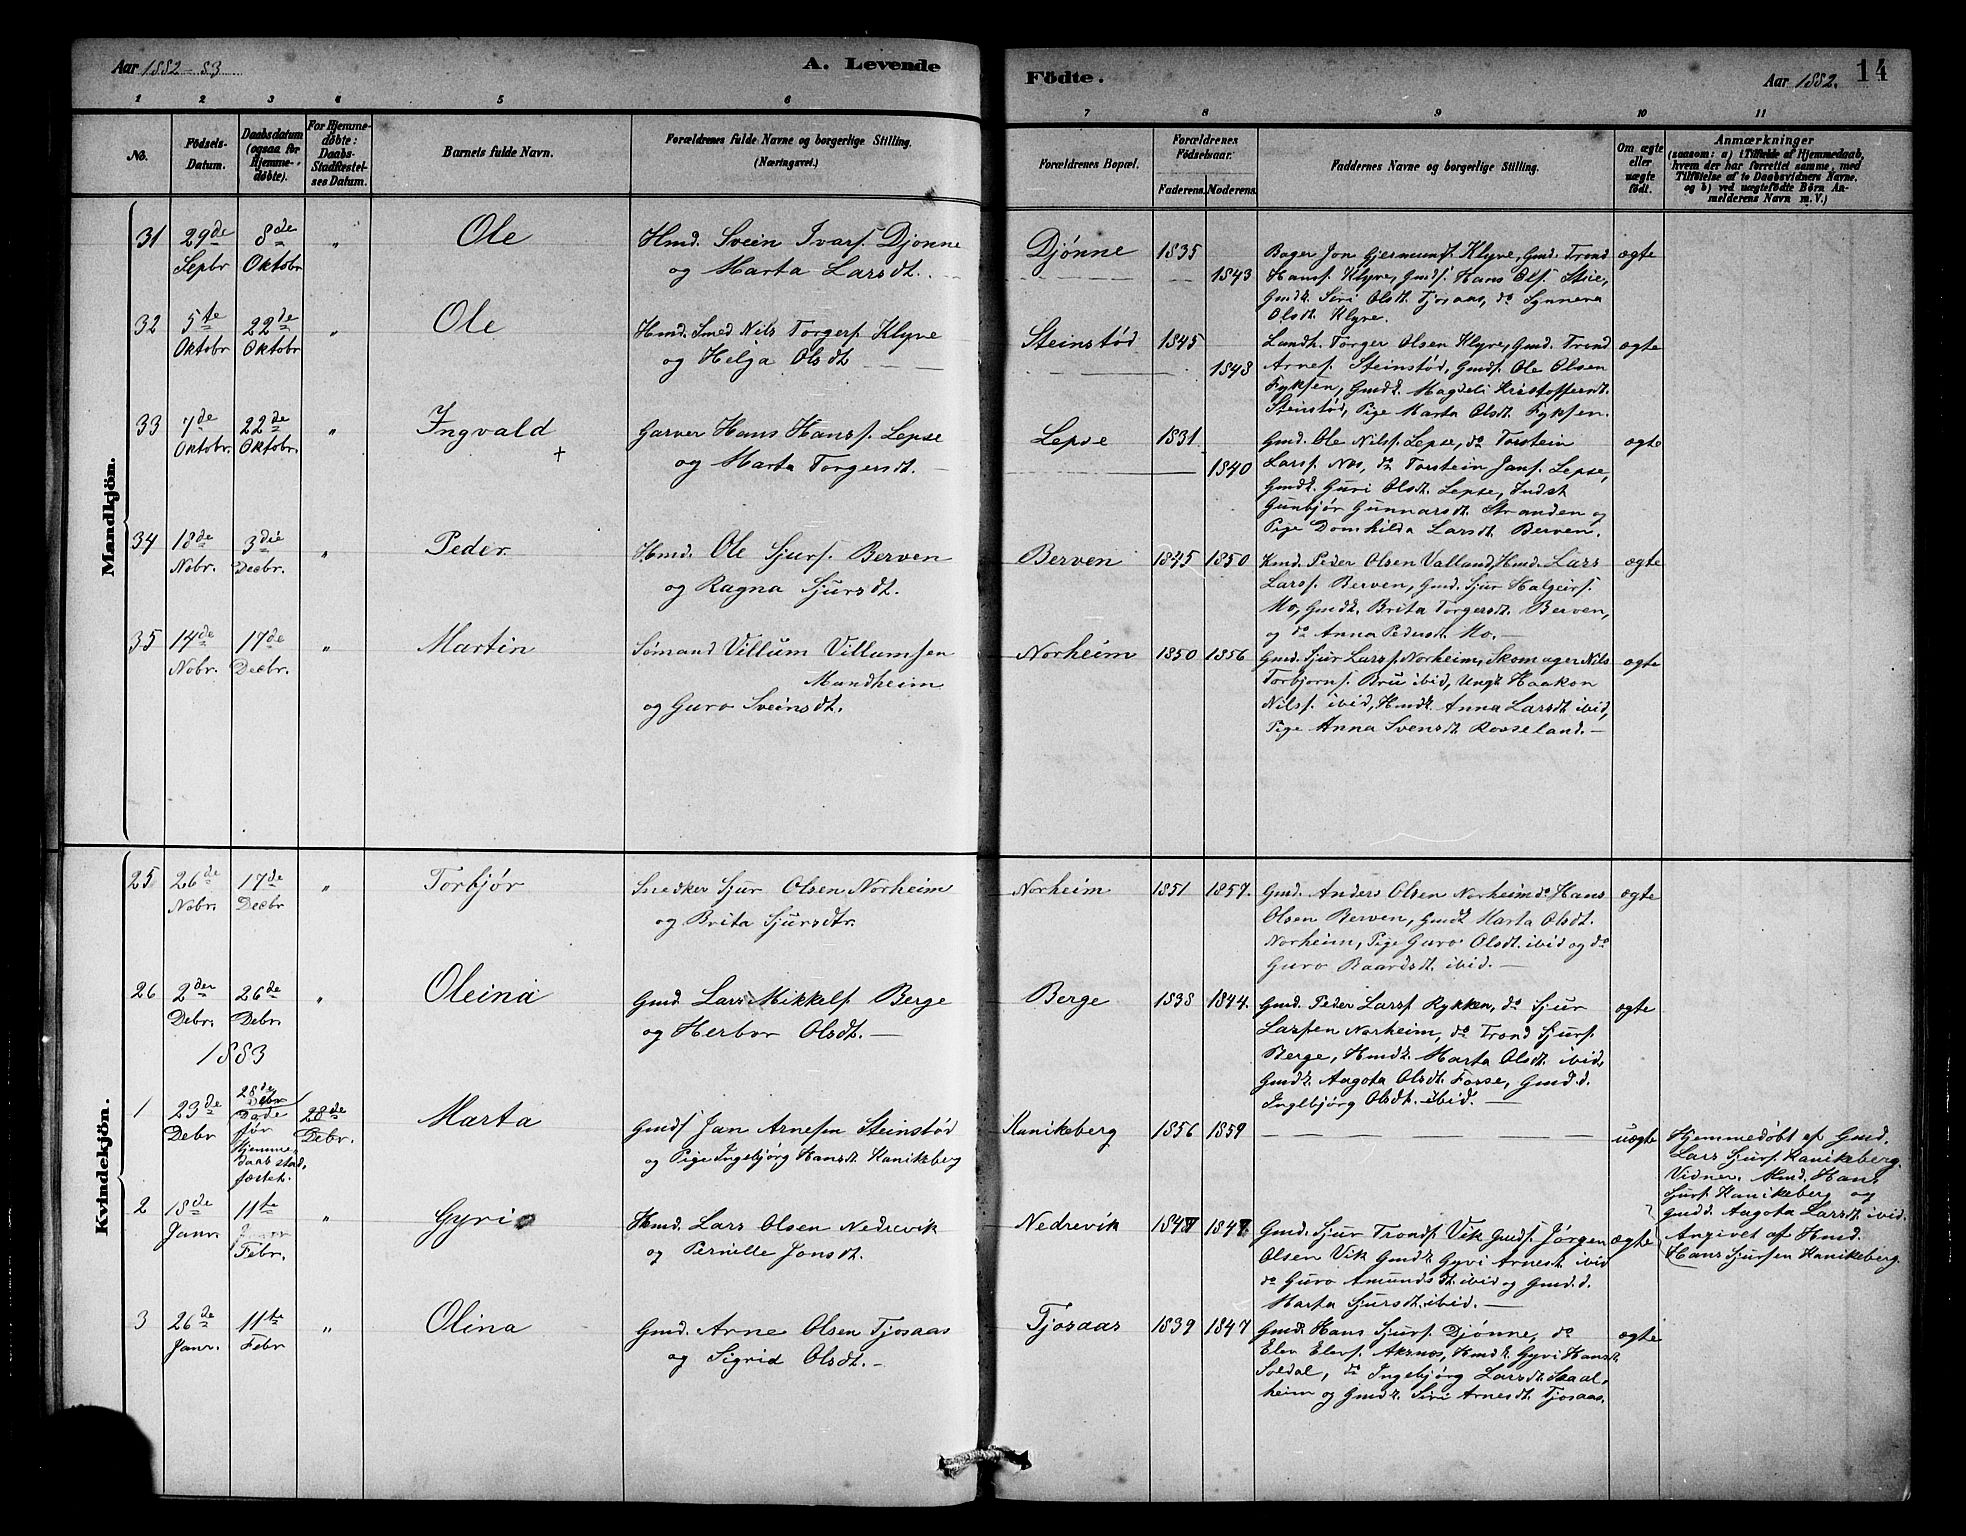 Aar 1882-83
A. Levende
Födte.
Aar 1882.
14
1 2 3 4 5 6 7 8 9 10 11
No.
Födsels-
Datum.
Daabsdatum
(ogsaa for
Hjemme-
døbte).
For Hjemme-
døbte:
Daabs-
Stadfæstel-
ses Datum.
Barnets fulde Navn.
Forældrenes fulde Navne og borgerlige Stilling.
(Næringsvei.)
Forældrenes Bopæl.
Forældrenes
Födselsaar.
Faderens. Moderens.
Faddernes Navne og borgerlige Stilling.
Om ægte
eller
uægte
født.
Anmærkninger
(saasom: a) i Tilfælde af Hjemmedaab,
hvem der har forrettet samme, med
Tilføielse af to Daabsvidners Navne.
og b) ved uægtefødte Börn An-
melderens Navn m. V.)
Mandkjön.
31
29de
Septbr
8de
Oktobr
"
Ole
Hmd. Svein Ivars. Djønne
og Marta Larsdt.
Djønne
1835
1843
Bager Jon Gjermunds. Klyve, Gmd. Trond
Hansf. Klyve, Gmdsf. Hans Olsf. Steie,
Gmdk. Siri Olsdt. Tjosaas, do Synneva
Olsdt. Klyve.
ægte
32
5te
Oktobr
22de
Oktobr
"
Ole
Hmd. Smed Nils Torgersf. Klyve
og Helga Olsdt
Steinstød
1845
1848
Landh. Torger Olsen Klyve, Gmd. Trond
Arnesf. Steinstød, Gmdsf. Ole Olsen
Fyksen, Gmdk. Magdeli Kristofferdt.
Steinstød, Pige Marta Olsdt. Fyksen.
ægte
33
7de
Oktobr.
22de
Oktobr.
"
Ingvald
+
Garver Hans Hansf. Lepse
og Marta Torgersdt.
Lepse
1831
1840
Gmd. Ole Nilsf. Lepse, do Torstein
Larsf. Nes, do Torstein Jansf. Lepse,
Gmdk. Guri Olsdt. Lepse, Indst
Gunbjør Gunnarsdt. Stranden og
Pige Domhilda Larsdt. Berven.
ægte
34
18de
Nobr.
3die
Decbr.
"
Peder
Hmd. Ole Sjursf. Berven
og Ragna Sjursdt.
Berven
1845
1850
Kmd. Peder Olsen Valland, Hmd. Lars
Larsf. Berven, Gmd. Sjur Halgeirsf.
Mo, Gmdk. Brita Torgersdt. Berven,
og do Anna Pedersdt. Mo.
ægte
35
14de
Nobr.
17de
Decbr.
"
Martin
Sømand Villum Villumsen
Mundheim
og Guro Sveinsdt.
Norheim
1850
1856
Gmd. Sjur Larsf. Norheim, Skomager Nils
Torbjørnsf. Bru ibid, Ungk. Haakon
Nilsf. ibid, Hmdk. Anna Larsdt. ibid,
Pige Anna Svensdt. Rosseland.
ægte
Kvindekjön.
25
26de
Nobr.
17de
Decbr
"
Torbjør
Snedker Sjur Olsen Norheim
og Brita Sjursdtr.
Norheim
1851
1857.
Gmd. Anders Olsen Norheim do Hans
Olsen Berven, Gmdk Marta Olsdt.
Norheim, Pige Guro Olsdt. ibid og do
Guro Baardsdt. ibid.
ægte
26
2den
Debr.
26de
Debr.
"
Oleina
Gmd. Lars Mikkelsf Berge
og Herbor Olsdt.
Berge
1838
1844.
Gmd. Peder Larsf. Rykken, do Sjur
Larsen Norheim, do Trond Sjursf.
Berge, Hmdk. Marta Olsdt. ibid,
Gmdk. Aagota Olsdt. Fosse, Gmd.d.
Ingebjørg Olsdt. ibid.
ægte
1883
1
23de
Debr
28de
Debr
Dade
før
Hjemme-
daab stad-
fæstet.
28de
Debr.
Marta
Gmdsf Jan Arnesen Steinstød
og Pige Ingebjørg Hansdt. Kanikeberg
Kanikeberg
1856
1859
uægte
Hjemmedøbt af Gmd.
Lars Sjursf. Kanikeberg.
Vidner. Hmd. Hans
Sjursf. Kanikeberg og
Gmdd. Aagota Larsdt. ibid.
Angivet af Hmd.
Hans Sjursen Kanikeberg.
2
18de
Janr.
11te
Febr.
"
Gyri
Hmd. Lars Olsen Nedrevik
og Pernille Jonsdt.
Nedrevik
1847
1847
Gmd. Sjur Trondsf. Vik Gmdsf. Jørgen
Olsen Vik Gmdk. Gyvi Arnesdt ibid
do Guro Amundsdt. ibid og Gmd.d.
Marta Sjursdt. ibid.
ægte
3
26de
Janr.
11te
Febr
"
Olina
Gmd. Arne Olsen Tjosaas
og Sigrid Olsdt.
Tjosaas
1839
1847
Gmd. Hans Sjursf. Djønne, do
Elev Elevsf. Aksnes, Hmdk. Gyvi Hansdt.
Soldal, do Ingebjørg Larsdt. Skaal-
heim og Gmdk. Siri Arnesdt. Tjosaas.
ægte